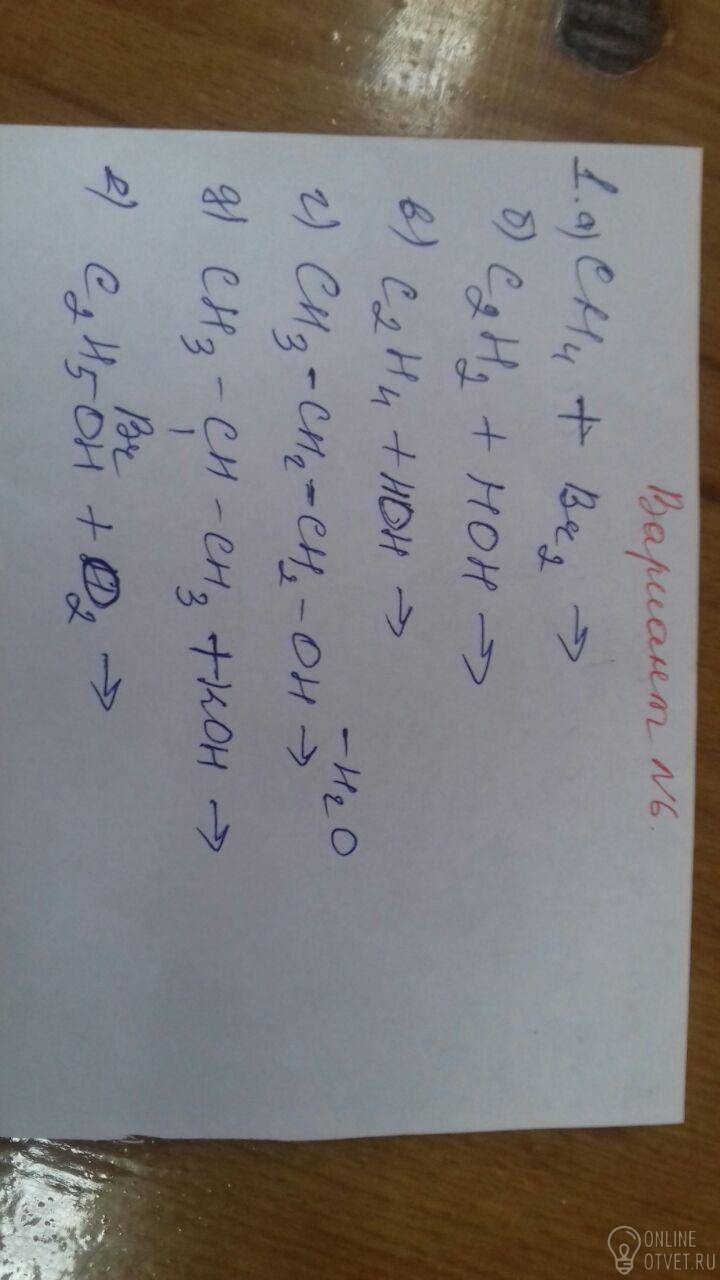 Вариант №6.
1. а) CH₄ + Br₂ →
б) C₂H₂ + HOH →
в) C₂H₄ + HOH →
г) CH₃-CH₂-CH₂-OH → -H₂O
д) CH₃-CH-CH₃ + KOH →
Br
е) C₂H₅-OH + O₂ →
ONLINE
OTVET.RU